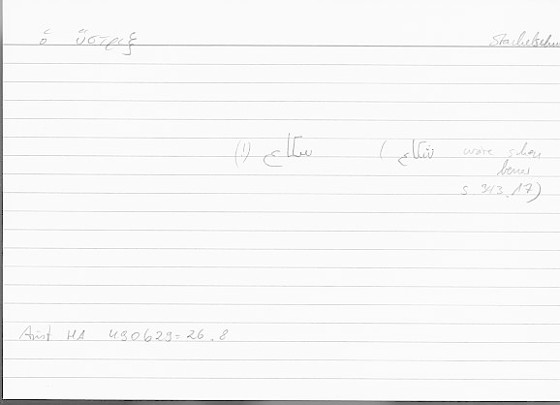 ὁ ὕστριξ Stachelschw
(!) سكاع ( شكاع wäre schon
besser
s 343.17)
Arist HA 490b29 = 26.8